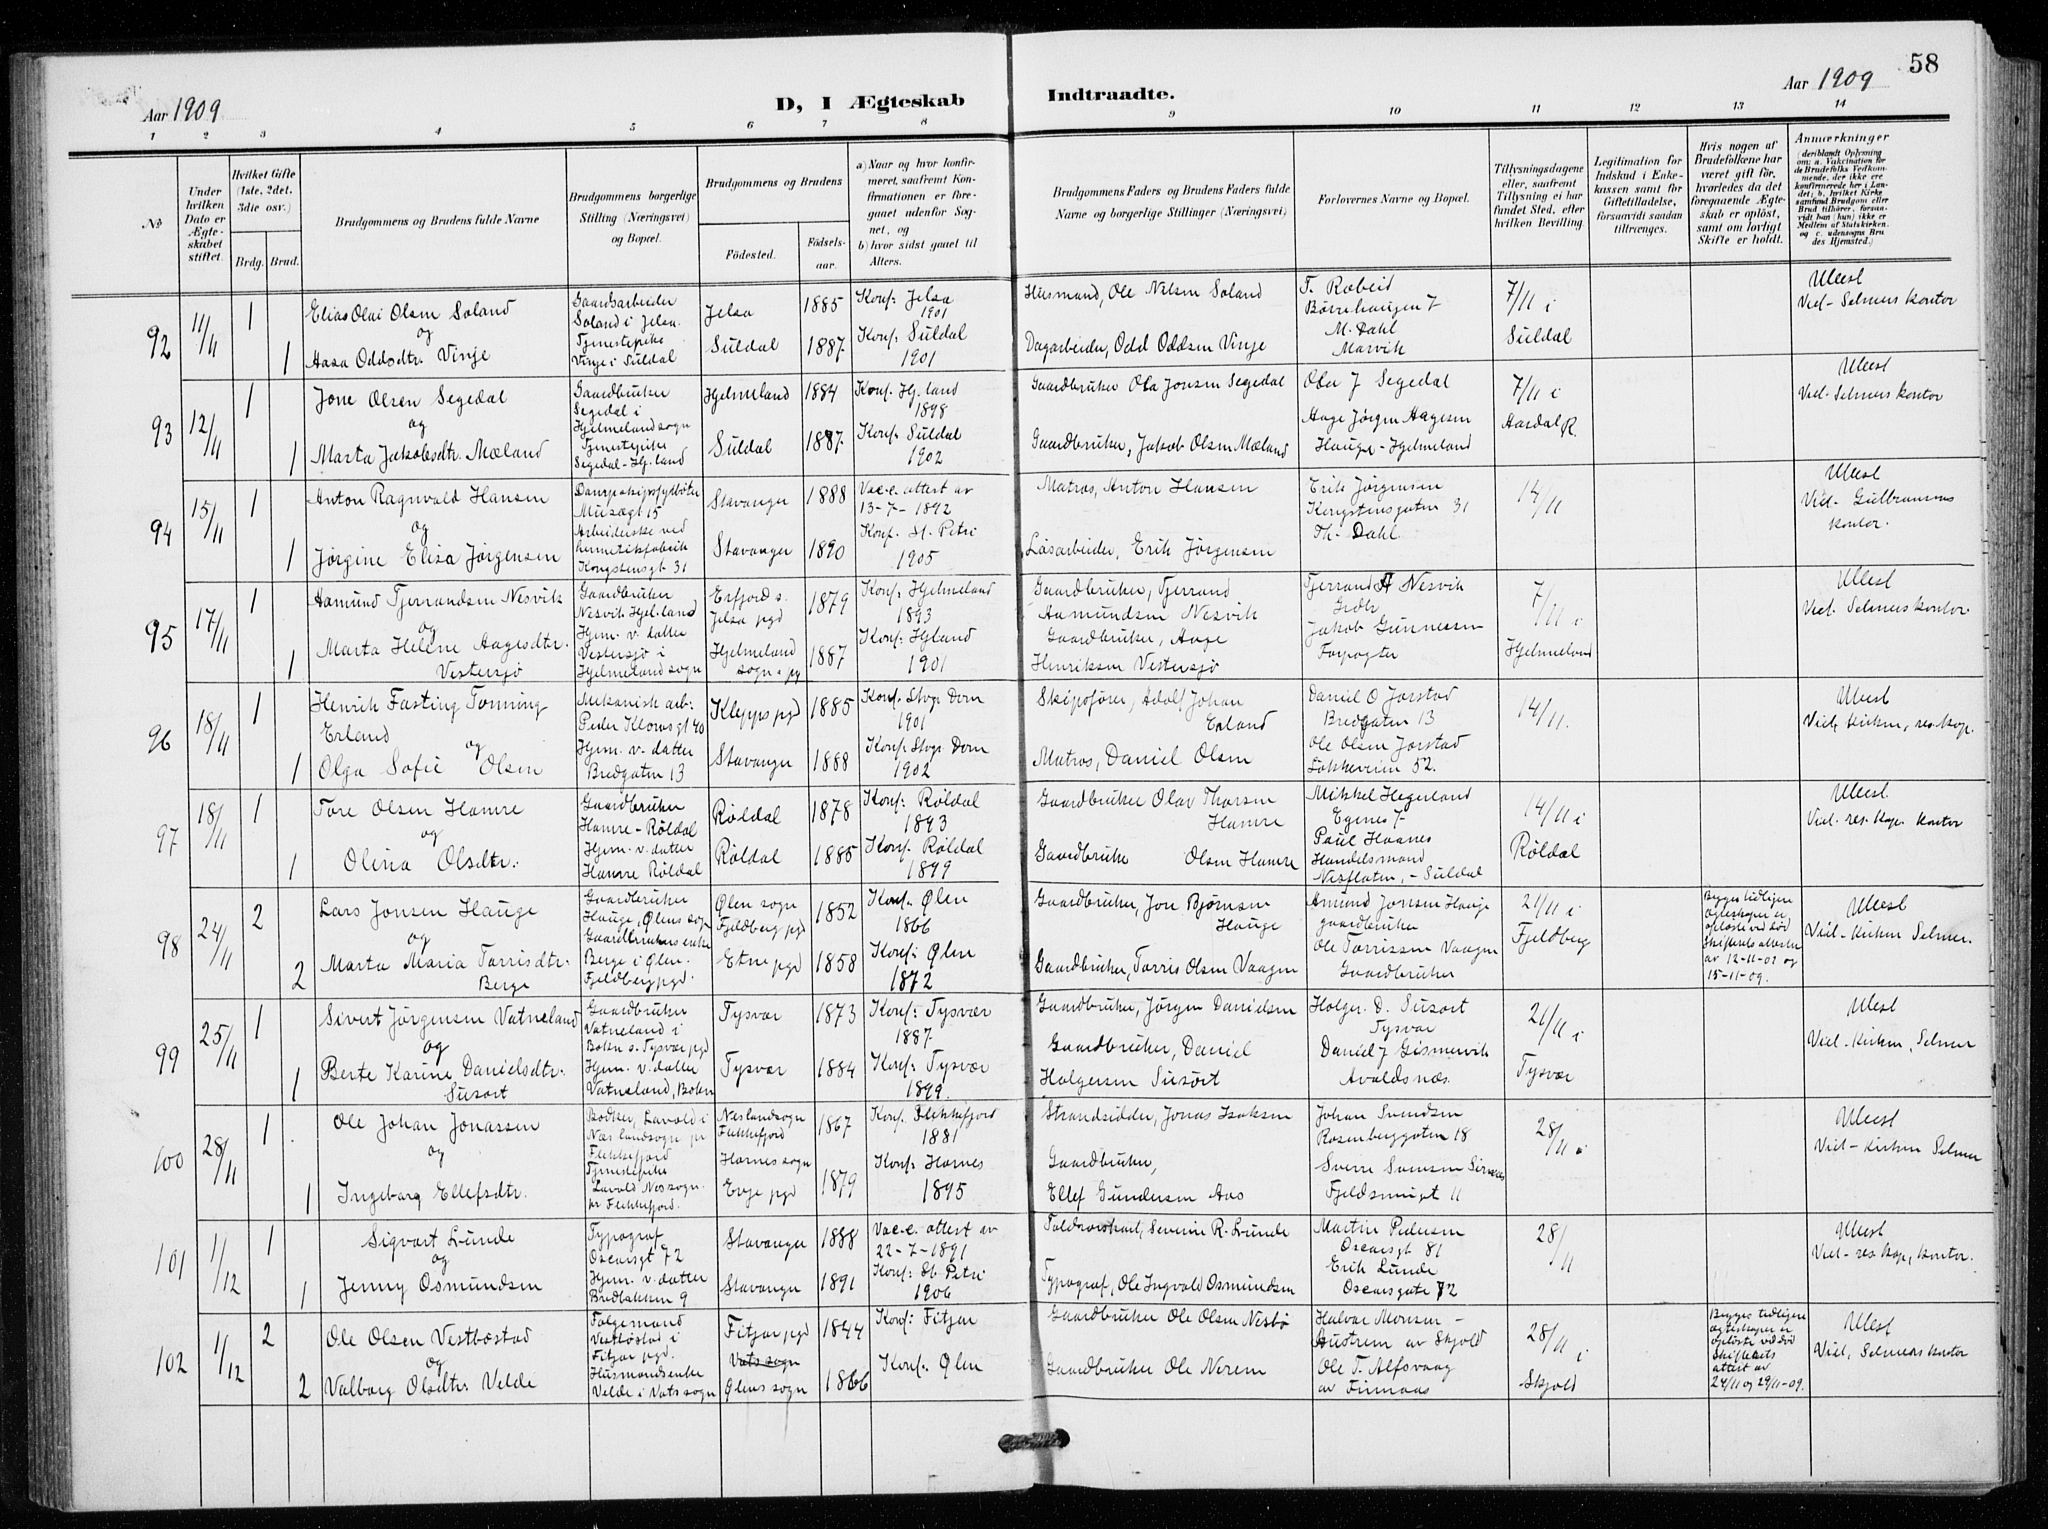 58
Aar 1909
D, I Ægteskab
Indtraadte.
Aar 1909
1 2 3 4 5 6 7 8 9 10 11 12 13 14
No
Under hvilken Dato er Ægteskabet stiftet.
Hvilket Gifte (1ste, 2det, 3die osv.)
Brdg. Brud.
Brudgommens og Brudens fulde Navne
Brudgommens borgerlige Stilling (Næringsvei) og Bopæl.
Brudgommens og Brudens
Födested.
Födselsaar.
a) Naar og hvor konfirmeret, saafremt Konfirmationen er foregaaet udenfor Sognet, og
b) hvor sidst gaaet til Alters.
Brudgommens Faders og Brudens Faders fulde Navne og borgerlige Stillinger (Næringsvei)
Forlovernes Navne og Bopæl.
Tillysningsdagene eller, saafremt Tillysning ei har fundet Sted, efter hvilken Bevilling.
Legitimation for Indskud i Enkekassen samt for Giftetilladelse, forsaavidt saadan tiltrænges.
Hvis nogen af Brudefolkene har været gift før, hvorledes da det foregaaende Ægteskab er opløst, samt om lovligt Skifte er holdt.
Anmerkninger
(deriblandt Oplysning om: a. Vakcination for de Brudefolks Vedkommende, der ikke ere konfirmerede her i Landet; b. hvilket Kirkesamfund Brudgom eller Brud tilhörer, forsaavidt han (hun) ikke er Medlem af Statskirken, og c. udensogns Brudes Hjemsted.)
92
11/11
1
1
Elias Olai Olsen Soland
og
Aasa Oddsdtr. Vinje
Gaardsarbeider
Soland i Jelsa.
Tjenestepike
Vinje i Suldal
Jelsa 1885
Suldal 1887
Konf: Jelsa
1901
Konf: Suldal
1901
Husmand, Ole Nilsen Soland
Dagarbeider, Odd Oddsen Vinje
M. Dahl
Marvik
7/11 i
Suldal
Ulæst
Viel- Selmers kontor
93
12/11
1
1
Jone Olsen Segedal
og
Marta Jakobsdtr. Mæland
Gaardbruker
Segedal i
Hjelmelandsogn
Tjenestepike
Segedal-Hj.land
Hjelmeland 1884
Suldal 1887
Konf: Hj.land
1898
Konf: Suldal
1902
Gaardbruker Ola Jonsen Segedal
Gaardbruker, Jakob Olsen Mæland
Ola J Segedal
Aage Jørgen Aagesen
Hauge-Hjelmeland
7/11 i
Aardal R.
Ulæst
Viel- Selmers kontor
94
15/11
1
1
Anton Ragnvald Hansen
og
Jørgine Elisa Jørgensen
Dampskipsfyrbøter
Musægt 15
Arbeiderske ved
hermetikfabrik
Kongstensgt 31
Stavanger 1888
Stavanger 1890
Vac.c. attest av
13-7-1892
Konf: St. Petri
1905
Matros, Anton Hansen
Løsarbeider, Erik Jørgensen
Erik Jørgensen
Kongstensgaten 31
Th. Dahl
14/11
Ulæst
Viel-
kontor.
95
17/11
1
1
Aamund Tjerrandsen Nesvik
og
Marta Helene Aagesdtr.
Vestersjø
Gaardbruker
Nesvik Hjel.land
Hjem. v. datter
Vestersjø i
Hjelmelandsogn
Erfjord s.
Jelsa pgd 1879
Hjelmeland
sogn & pg 1887
Konf: Hjelmeland
1893
Konf: Hjland
1901
Gaardbruker, Tjerrand
Aamundsen Nesvik
Gaardbruker, Aage
Henriksen Vestersjø
Tjerrand A Nesvik
Grdbr
Jakob Gunnessen
Forpagter
7/11 i
Hjelmeland
Ulæst
Viel. Selmers kontor.
96
18/11
1
1
Henrik Fasting Tonning
Erland
og
Olga Sofie Olsen
Mekanisk arb:
Peder Klowsgt 40
Hjem. v. datter
Bredgaten 13
Klepps pgd 1885
Stavanger 1888
Konf: Stvgr Dom
1901
Konf. Stvgr. Dom
1902
Skipsfører, Adolf Johan
Erland
Matros, Daniel Olsen
Daniel O Jorstad
Bredgaten 13
Ole Olsen Jorstad
Løkkeveien 52.
14/11.
Ulæst
Viel, Kirken, res. kap.
97
18/11
1
1
Tore Olsen Hamre
og
Olina Olsdtr.
Gaardbruker
Hamre-Røldal
Hjem. v. datter
Hamre Røldal
Røldal 1878
Røldal 1885
Konf: Røldal
1893
Konf. Røldal
1899
Gaardbruker Olav Thorsen
Hamre
Gaardbruker Olsen Hamre
Mikkel Hegerland
Egenes
Paul Haanes
Handelsmand
Nesflaten, - Suldal
14/11 i
Røldal
Ulæst
Viel- res. kap. kontor
98
24/11
2
2
Lars Jonsen Hauge
og
Marta Maria Torrisdtr.
Berge
Gaardbruker
Hauge, Ølens sogn
Gaardbrukers enke
Berge i Ølen.
Fjeldberg pgd.
Ølen sogn
Fjeldberg pgd 1852
Etne pgd 1858
Konf: Ølen
1866
Konf: Ølen
1872
Gaardbruker, Jon Bjørnsen
Hauge
Gaardbruker, Torris Olsen Vaagen
Amund Jonsen Hauge
gaardbruker
Ole Torrissen Vaagen
Gaardbruker
21/11 i
Fjeldberg
Begges tidligere
ægteskaper er
opløste ved død
Skifterets attester
av 12-11-09 og
15-11-09.
Ulæst
Viel- Kirken Selmer.
99
25/11
1
1
Sivert Jørgensen Vatneland
og
Berte Karine Danielsdtr.
Susort
Gaardbruker
Vatneland i
Bokn s. Tysvær pgd
Hjem. v. datter
Vatneland, Bokn
Tysvær 1873
Tysvær 1884
Konf: Tysvær
1887.
Konf: Tysvær
1899.
Gaardbruker, Jørgen Danielsen
Gaardbruker, Daniel
Holgersen Susort
Holger. D. Susort
Tysvær
Daniel J Gismervik
Avaldsnæs.
21/11 i
Tysvær
Ulæst
Viel- Kirken, Selmer
100
28/11
1
1
Ole Johan Jonassen
og
Ingeborg Ellefsdtr.
Bødker, Lavold i
Næslandsogn pr
Flekkefjord
Tjenestepike
Lavold Nessogn.
pr Flekkefjord.
Neslandsogn
Flekkefjord 1867
Hornes sogn
Evje pgd 1879
Konf. Flekkefjord
1881
Konf: Hornes
1895
Strandsidder, Jonas Isaksen
Gaardbruker,
Ellef Gundersen Aas
Johan Svendsen
Rosenberggaten 18
Fjeldsmugt 11
28/11 i
Ulæst
Viel- Kirken Selmer
101
1/12
1
1
Sigvart Lunde
og
Jenny Osmundsen
Typograf
Oscarsgt 72
Hjem. v. datter
Bredbakken 9
Stavanger 1888
Stavanger 1891
Vac.c. attest av
22-7-1891
Konf: St. Petri
1906
Toldopsynsmand, Severin R. Lunde
Typograf, Ole Ingvald Osmundsen
Martin Pedersen
Oscarsgt 81
Erik Lunde
Oscarsgate 72
28/11
Ulæst
Viel- res kap, kontor.
102
1/12
2
2
Ole Olsen Vestbøstad
og
Valborg Olsdtr. Velde
Folgemand
Vestbøstad i
Fitjar pgd.
Husmandsenke
Velde i Vats sogn
Fitjar pgd 1844
Vats sogn
Ølens sogn 1866
Konf: Fitjar
Konf: Ølen
Gaardbruker Ole Olsen Nesbø
Gaardbruker Ole Nerem
Halvar Monsen -
Austrem av Skjold
Ole T. Alfsvaag
av Finnaas
28/11 i
Skjold
Begges tidligere
ægteskaper er
opløste ved død
Skifterets
attest av
24/11 og 29/11-09.
Ulæst
Viel, Selmers kontor